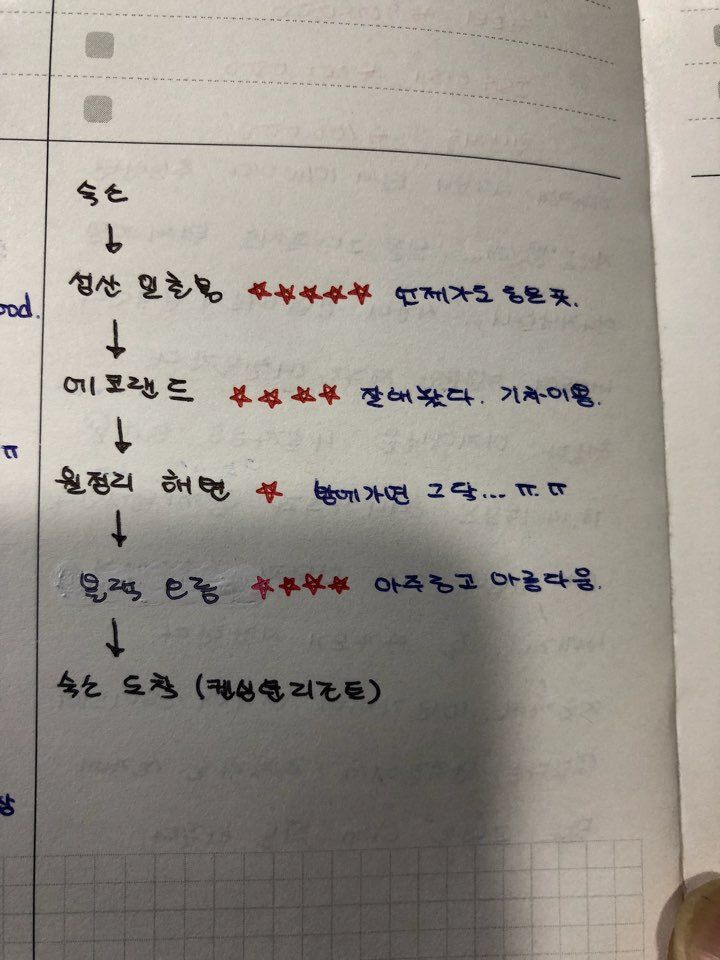 숙소
↓
성산 일출봉 ☆☆☆☆☆ 언제가도 좋은 곳.
↓
에코랜드 ☆☆☆☆ 잘해놨다. 기차이용.
↓
월정리 해변 ☆ 밤에가면 그닥... ㅠ.ㅠ
↓
오름 ☆☆☆☆ 아주 아름다움.
↓
숙소 도착 (켄싱턴리조트)
ood.
ㅠ